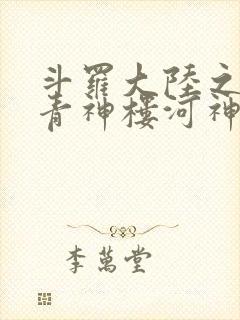 斗羅大陸之
青神樓河神
李萬堂